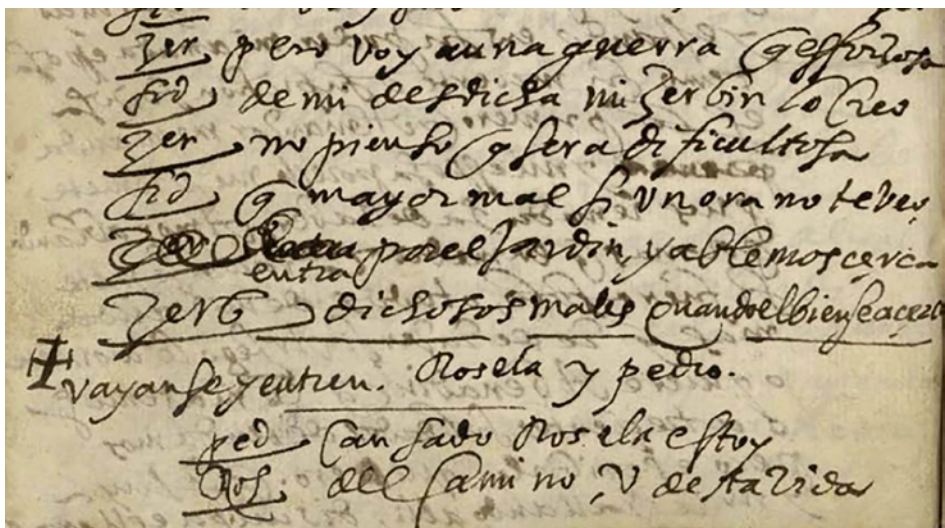 zer pero voy a una guerra q es forzosa
fid de mi desdicha mi zerbin lo creo
zer no pienso q sera dificultosa
fid q mayor mal si un ora no te veo
entra por el jardin, y ablemos cerca
zerb dichosos males quando el bien se acerca
vayanse y entren. Rosela y pedro.
ped Cansado Rosela estoy
Ros del Camino, v desta vida